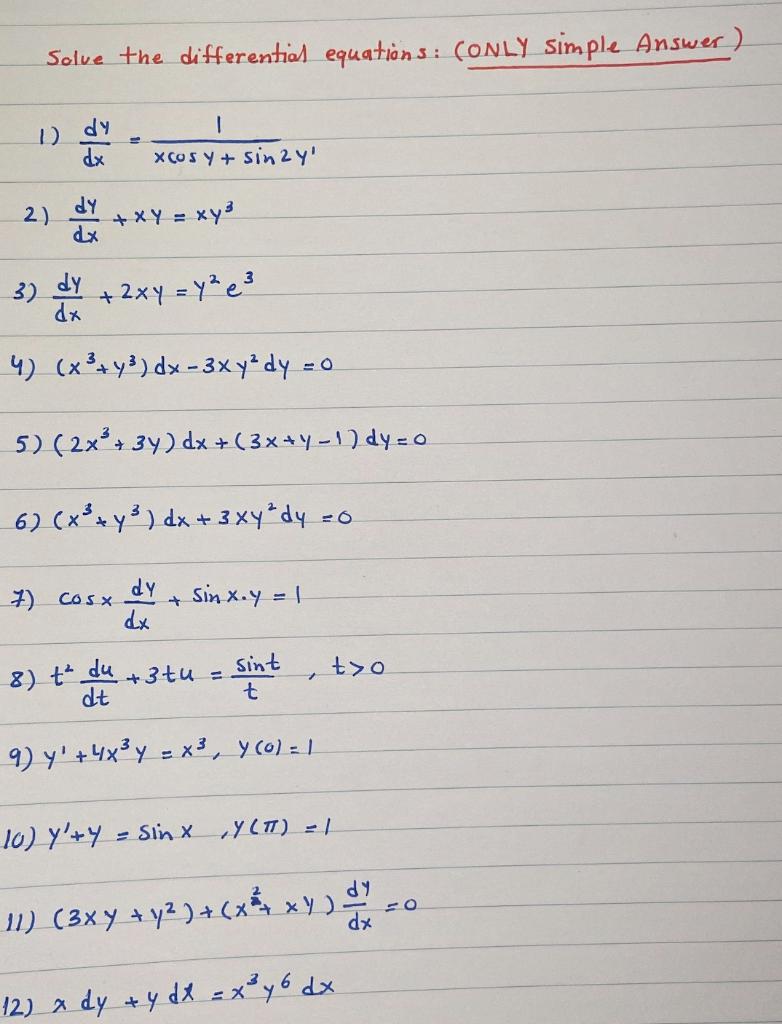 Solve the differential equations: (ONLY simple Answer)
1) dy/dx = 1/(xcos y + sin 2 y')
2) dy/dx + xy = xy³
3) dy/dx + 2xy = y² e³
4) (x³ + y³) dx - 3xy² dy = 0
5) (2x³ + 3y) dx + (3x + y - 1) dy = 0
6) (x³ + y³) dx + 3xy² dy = 0
7) cos x dy/dx + sin x . y = 1
8) t² du/dt + 3tu = sin t/t , t > 0
9) y' + 4x³y = x³, y(0) = 1
10) y' + y = sin x , y(π) = 1
11) (3xy + y²) + (x² + xy) dy/dx = 0
12) x dy + y dx = x³y⁶ dx